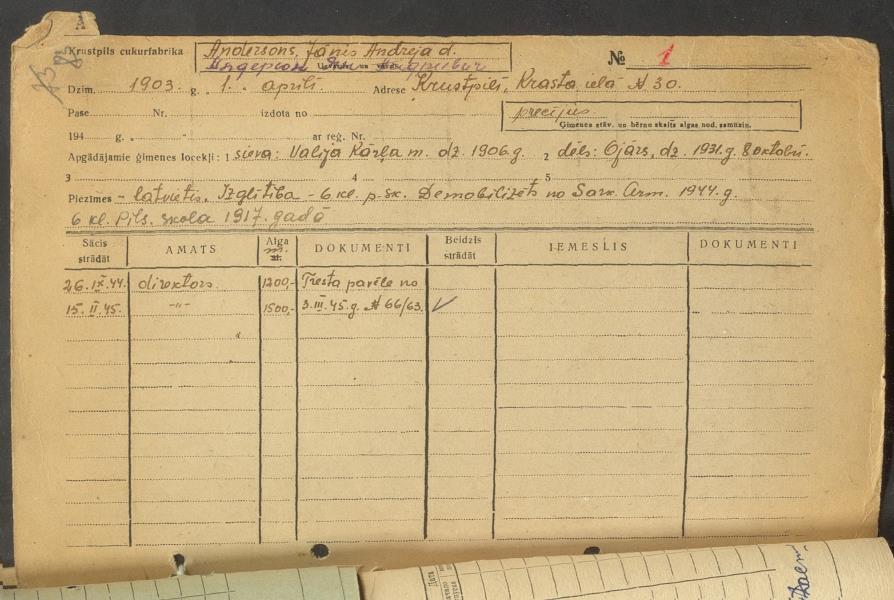 Krustpils cukurfabrika
Andersons, Jānis Andreja d.
Андерсон Ян Андреевич
№ 1
Dzim. 1903. g. 1. aprīlī. Adrese Krustpilī, Krasta ielā № 30.
Pase Nr. izdota no
precējies
Ģimenes stāv. un bērnu skaits algas nod. samaksai.
194 g. ar reģ. Nr.
Apgādājamie ģimenes locekļi: 1 sieva: Valija Kārļa m. dz. 1906.g. 2 dēls: Ojārs, dz. 1931.g. 8 oktobrī.
3 4 5
Piezīmes – latvietis, Izglītība – 6 kl. p-sk. Demobilizēts no Sark. Arm. 1944. g.
6 kl. Pils. skola 1917. gadā
Sācis strādāt AMATS Alga m. DOKUMENTI Beidzis strādāt IEMESLIS DOKUMENTI
26.IX.44. direktors 1200,- Tresta pavēle no
15. II. 45. -"- 1500,- 3.III.45.g. № 66/63.